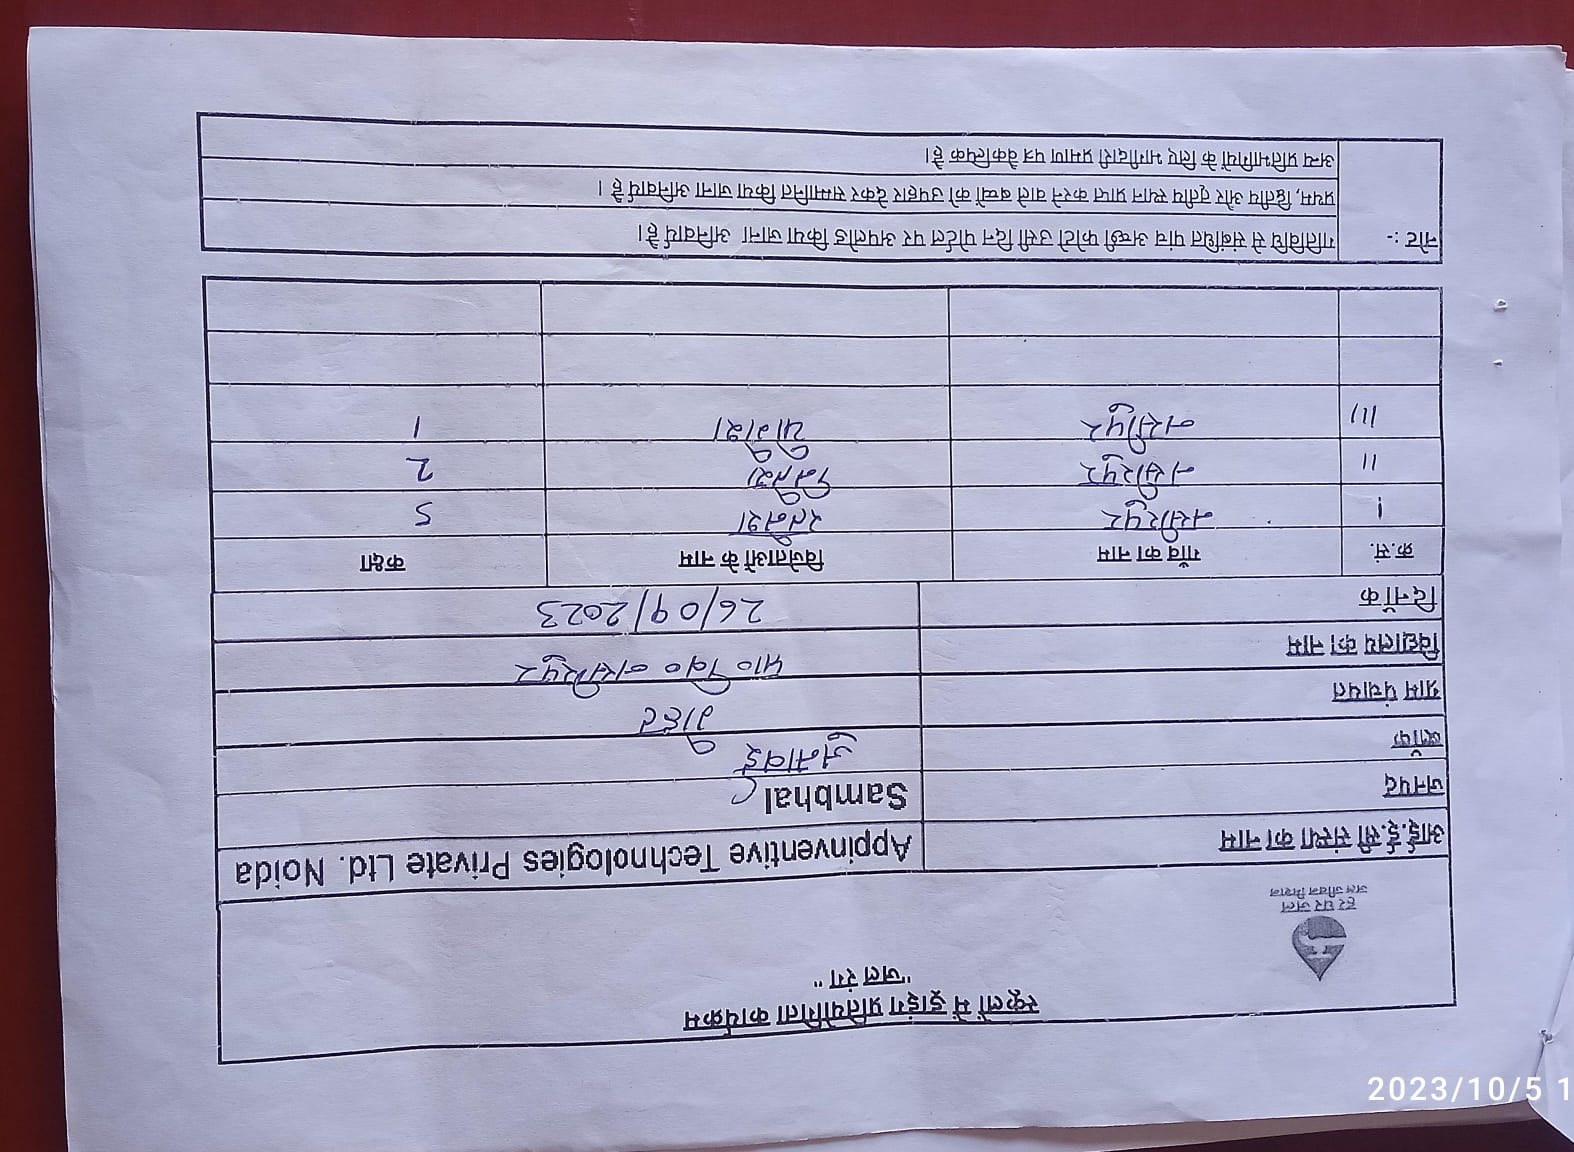 स्कूलों में ड्राइंग प्रतियोगिता कार्यक्रम
"जल रंग"
हर घर जल
जल जीवन मिशन
आई.ई.सी संस्था का नाम Appinventive Technologies Private Ltd. Noida
जनपद Sambhal
ब्लॉक जुनावई
ग्राम पंचायत
विद्यालय का नाम प्रा० वि० नसीरपुर
दिनाँक 26/09/2023
क्र.सं. गाँव का नाम विजेताओं के नाम कक्षा
I नसीरपुर रतनेश 5
II नसीरपुर 2
III नसीरपुर 1
नोट :- गतिविधि से संबंधित पांच अच्छी फोटो उसी दिन पोर्टल पर अपलोड किया जाना अनिवार्य है।
प्रथम, द्वितीय और तृतीय स्थान प्राप्त करने वाले बच्चों को उपहार देकर सम्मानित किया जाना अनिवार्य है ।
अन्य प्रतिभागियों के लिए भागीदारी प्रमाण पत्र वैकल्पिक है।
2023/10/5 1